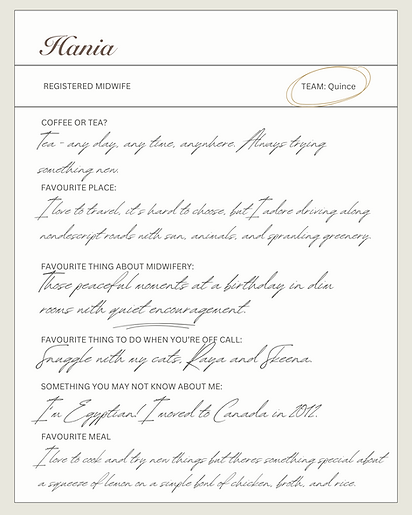 Hania
REGISTERED MIDWIFE
TEAM: Quince
COFFEE OR TEA?
Tea - any day, any time, anywhere. Always trying
something new.
FAVOURITE PLACE:
I love to travel, it's hard to choose, but I adore driving along
nondescript roads with sun, animals, and sprawling greenery.
FAVOURITE THING ABOUT MIDWIFERY:
Those peaceful moments at a birthday in dim
rooms with quiet encouragement.
FAVOURITE THING TO DO WHEN YOU'RE OFF CALL:
Snuggle with my cats, Raya and Skeena.
SOMETHING YOU MAY NOT KNOW ABOUT ME:
I'm Egyptian! I moved to Canada in 2012.
FAVOURITE MEAL
I love to cook and try new things but theres something special about
a squeeze of lemon on a simple bowl of chicken, broth, and rice.